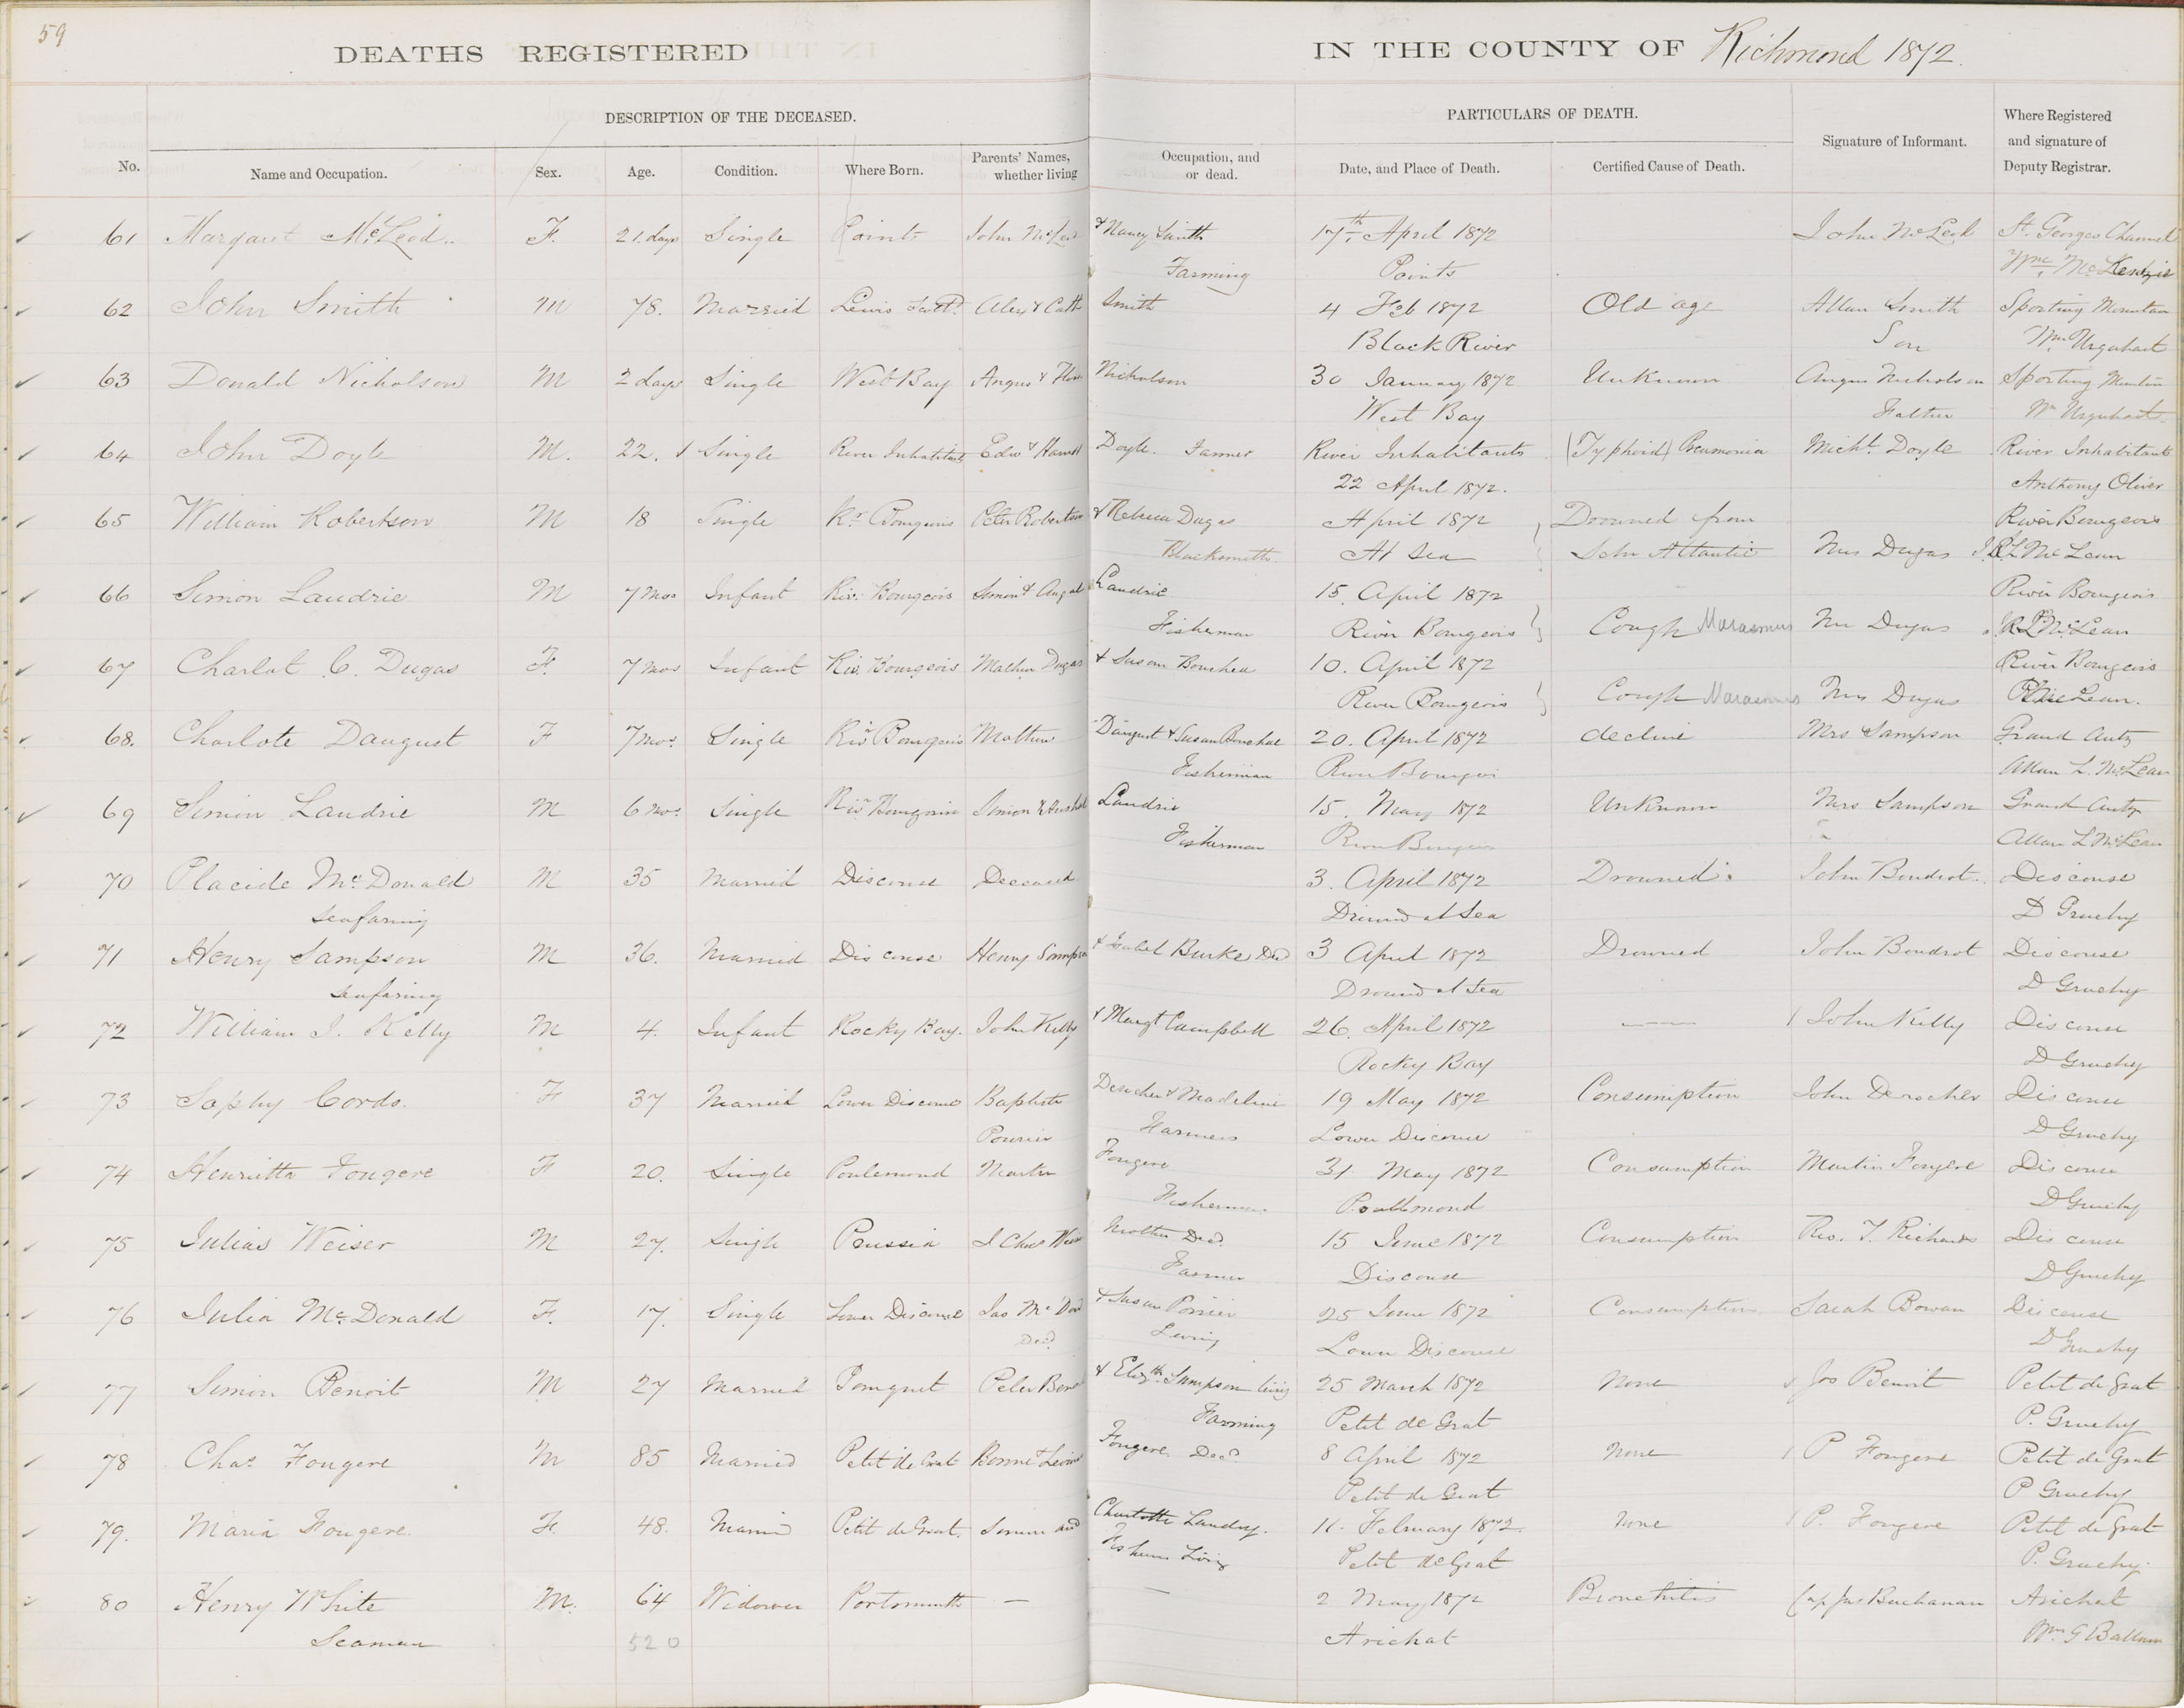 59
DEATHS REGISTERED IN THE COUNTY OF Richmond 1872.
DESCRIPTION OF THE DECEASED. PARTICULARS OF DEATH.
No. Name and Occupation. Sex. Age. Condition. Where Born. Parents' Names, whether living Occupation, and or dead. Date, and Place of Death. Certified Cause of Death. Signature of Informant. Where Registered and signature of Deputy Registrar.
61 Margaret McLeod F. 21 days Single Points John McLeod & Nancy Smith 17th April 1872 John McLeod St. Georges Channel
Farming Points Wm McKenzie
62 John Smith M 78. Married Lewis Scotd. Alex & Cath Smith 4 Feb 1872 Old age Allan Smith Sporting Mountain
Black River Son Wm Urquhart
63 Donald Nicholson M 2 days Single West Bay Angus & Flora Nicholson 30 January 1872 Unknown Angus Nicholson Sporting Mountain
West Bay Father Wm Urquhart
64 John Doyle M. 22. Single River Inhabitants Edwd & Doyle. Farmer River Inhabitants (Typhoid) Pneumonia Michl. Doyle River Inhabitants
22 April 1872. Anthony Oliver
65 William Robertson M 18 Single Rr. Bourgeois Peter Robertson & Rebecca Dugas April 1872 Drowned from River Bourgeois
Blacksmith. At Sea Schr Atlantic Mrs Dugas McLean
66 Simon Landrie M 7 Mos Infant Riv. Bourgeois Simon & Landrie 15. April 1872 River Bourgeois
Fisherman River Bourgeois Cough Marasmus Mrs Dugas McLean
67 Charlot C. Dugas F. 7 mos Infant Riv. Bourgeois Mathew Dugas & Susan Bouchea 10. April 1872 River Bourgeois
River Bourgeois Cough Marasmus Mrs Dugas McLean.
68. Charlote Daugust F 7 mos. Single Rivr Bourgeois Mathew Daugust & Susan Bouchae 20. April 1872 decline Mrs Sampson Grand Anty
Fisherman River Bourgoi Allan L. McLean
69 Simon Landrie M 6 mos. Single Rivr Bourgoise Simon & Landrie 15. May 1872 Unknown Mrs Sampson Grand Anty
Fisherman River Bourgois Allan L McLean
70 Placide McDonald M 35 Married Discouse Deceased 3. April 1872 Drowned. John Boudrot. Discouse
Seafaring Dround at Sea D Gruchy
71 Henry Sampson M 36. Married Discouse Henry Sampson & Isabel Burke Dead 3 April 1872 Drowned John Boudrot Discouse
Seafaring Dround at Sea D Gruchy
72 William J. Kelly M 4. Infant Rocky Bay. John Kelly & Margt Campbell 26. April 1872 —— John Kelly Discouse
Rocky Bay D Gruchy
73 Saphy Cords. F 37 Married Lower Discouse Baptiste Derocher & Madeline 19 May 1872 Consumption John Derocher Discouse
Pourier Farmers Lower Discouse D Gruchy
74 Henrietta Fougere F 20. Single Poulemond Martin Fougere 31 May 1872 Consumption Martin Fougere Discouse
Fisherman Poullmond D Gruchy
75 Julias Weiser M 27. Single Prussia J Chas Weiser Mother Dead. 15 June 1872 Consumption Rev. T. Richards Discouse
Farmer Discouse D Gruchy
76 Julia McDonald F. 17. Single Lower Discouse Jas McDond & Susan Poirier 25 June 1872 Consumption Sarah Bowan Discouse
Dead Living Lower Discouse D Gruchy
77 Simon Benoit M 27 Married Pomquet Peter Benoit & Elizth. Sampson living 25 March 1872 None Jos Benoit Petit de Grat
Farming Petit de Grat P. Gruchy
78 Chas Fougere M 85 Married Petit de Grat Fougere Decd 8 April 1872 None P Fougere Petit de Grat
Petit de Grat P Gruchy
79. Maria Fougere. F. 48. Married Petit de Grat. Simon and Charlotte Landry. 11. February 1872. None P. Fougere Petit de Grat
Living Petit de Grat P. Gruchy.
80 Henry White M. 64 Widower Portsmouth — — 2 May 1872 Bronchitis Cap Jas Buchanan Arichat
Seaman 520 Arichat Wm. G Ballam